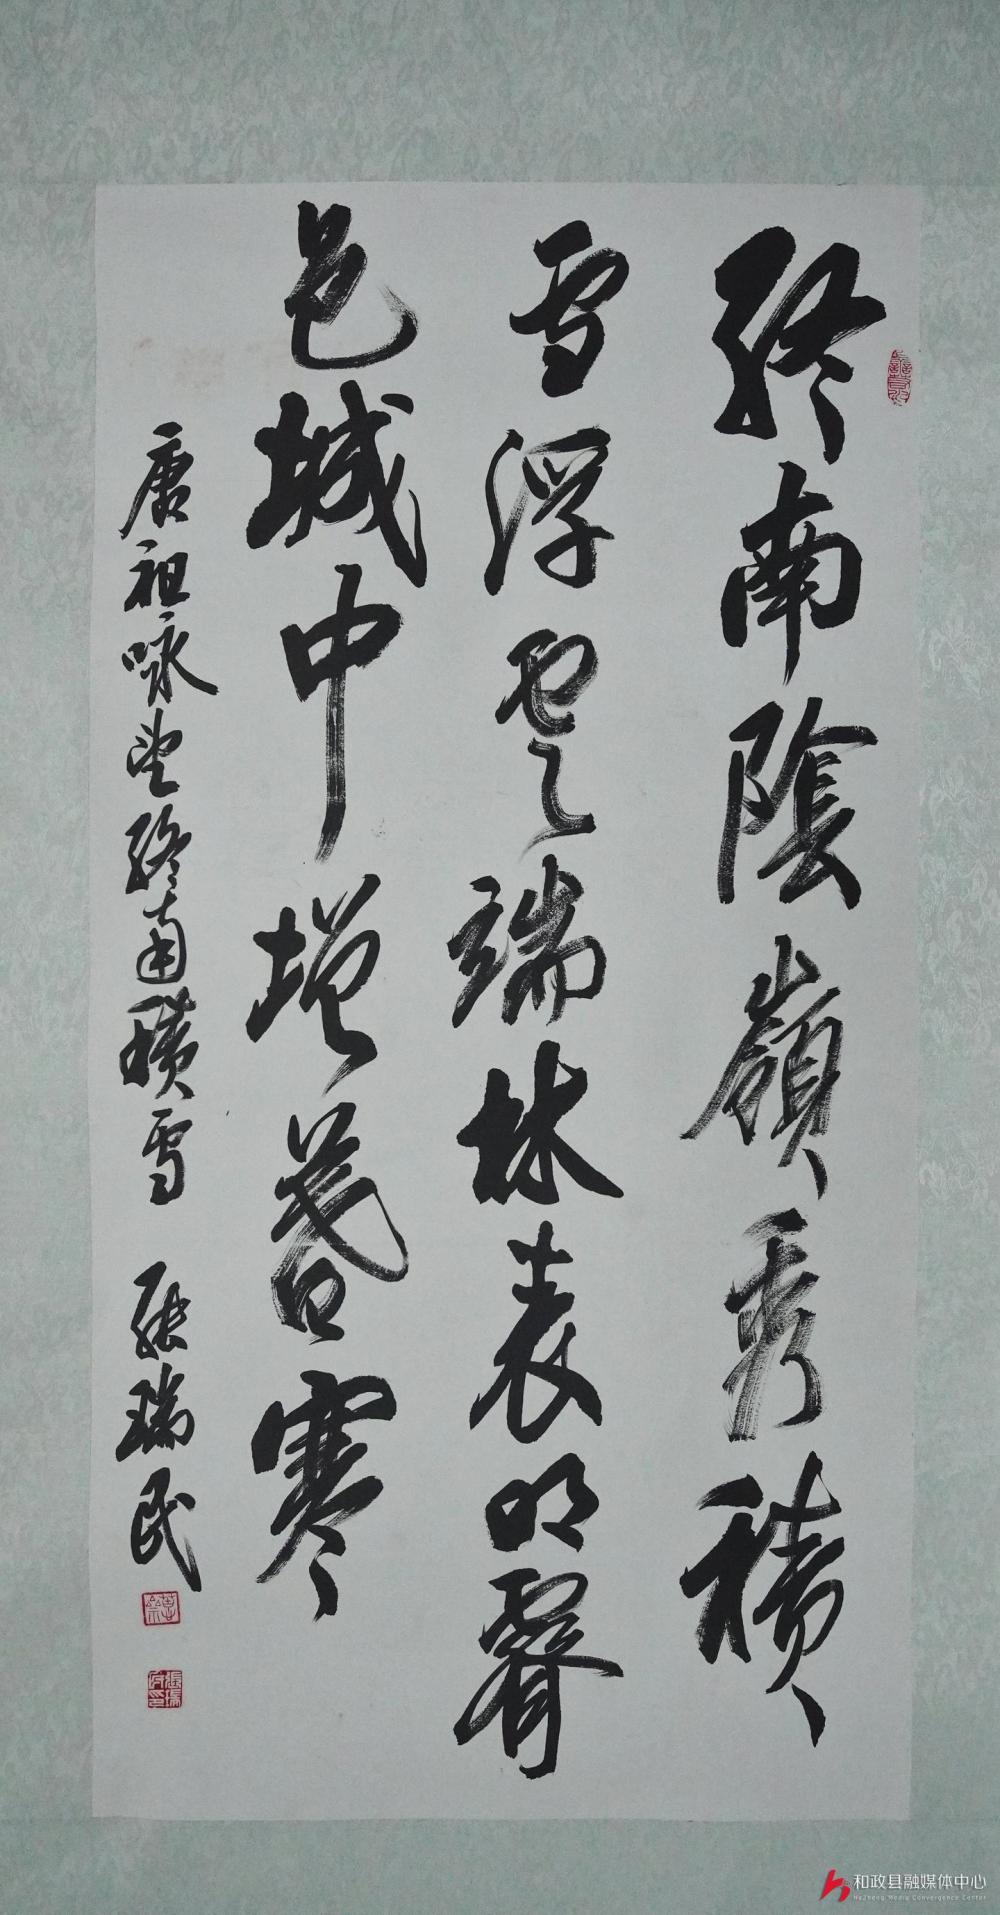 終南陰嶺秀積
雪浮雲端林表明霽
色城中增暮寒
唐祖咏望終南積雪 張瑞民
和政县融媒体中心
HeZheng Media Convergence Center